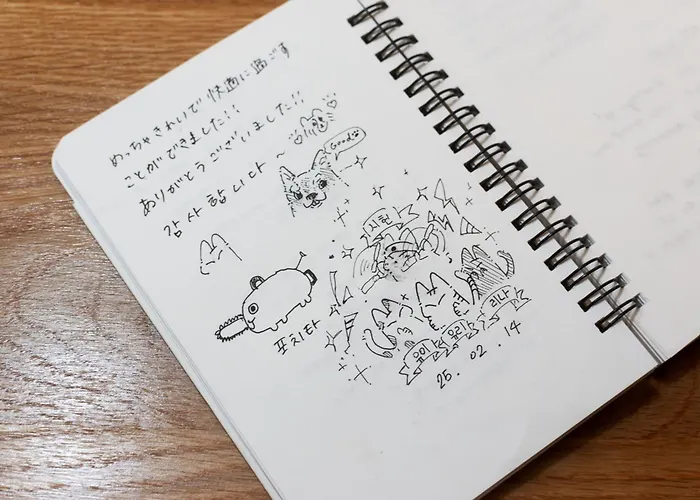 めっちゃきれいで 快適に過ごす
ことができました!!
ありがとうございました!!
감사합니다 ~
Good
지현
포치타
유이
유리
리나
25. 02. 14